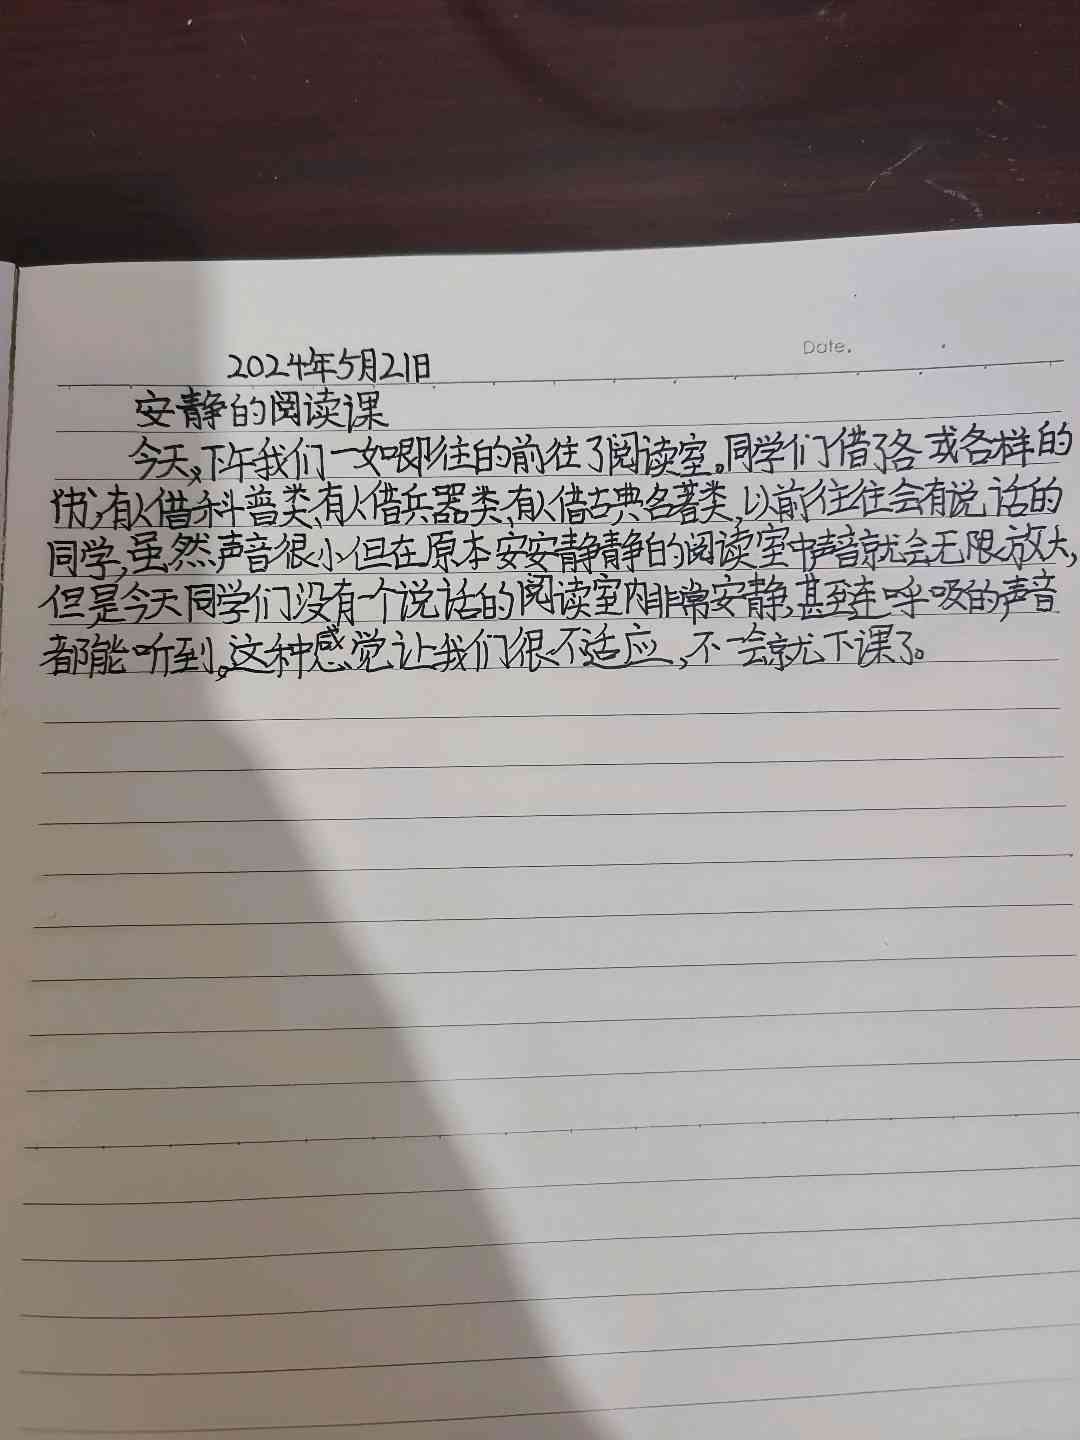 Date.
2024年5月21日
安静的阅读课
今天,下午我们一如即往的前往了阅读室。同学们借了各或各样的
书,有人借科普类、有人借兵器类、有人借古典名著类,以前往往会有说话的
同学,虽然声音很小但在原本安安静静的阅读室中声音就会无限放大,
但是今天同学们没有一个说话的阅读室内非常安静,甚至连呼吸的声音
都能听到。这种感觉让我们很不适应,不一会就下课了。